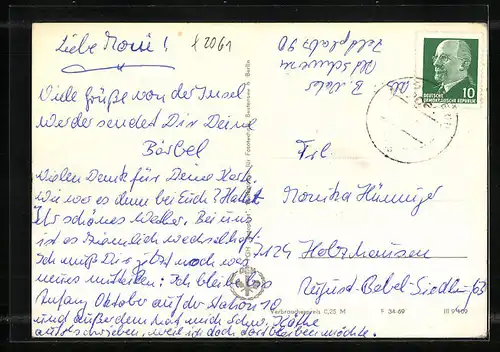 Liebe Moni!
Viele Grüße von der Insel
Werder sendet Dir Deine
Bärbel
Vielen Dank für Deine Karte.
Wie war es denn bei Euch? Hattet
Ihr schönes Wetter. Bei uns
ist es ziemlich wechselhaft.
Ich muß Dir jetzt noch was
neues mitteilen: Ich bleibe bis
Anfang Oktober auf der Station 10
und außerdem hat mich Schw. Käthe
aufgeschrieben, weil ich doch dort bleiben möchte.
Feldplatz 90
DEUTSCHE
DEMOKRATISCHE REPUBLIK
10
Frl.
Monika
7124 Holzhausen
August-Bebel-Siedlung 63
Verbraucherpreis 0,25 M